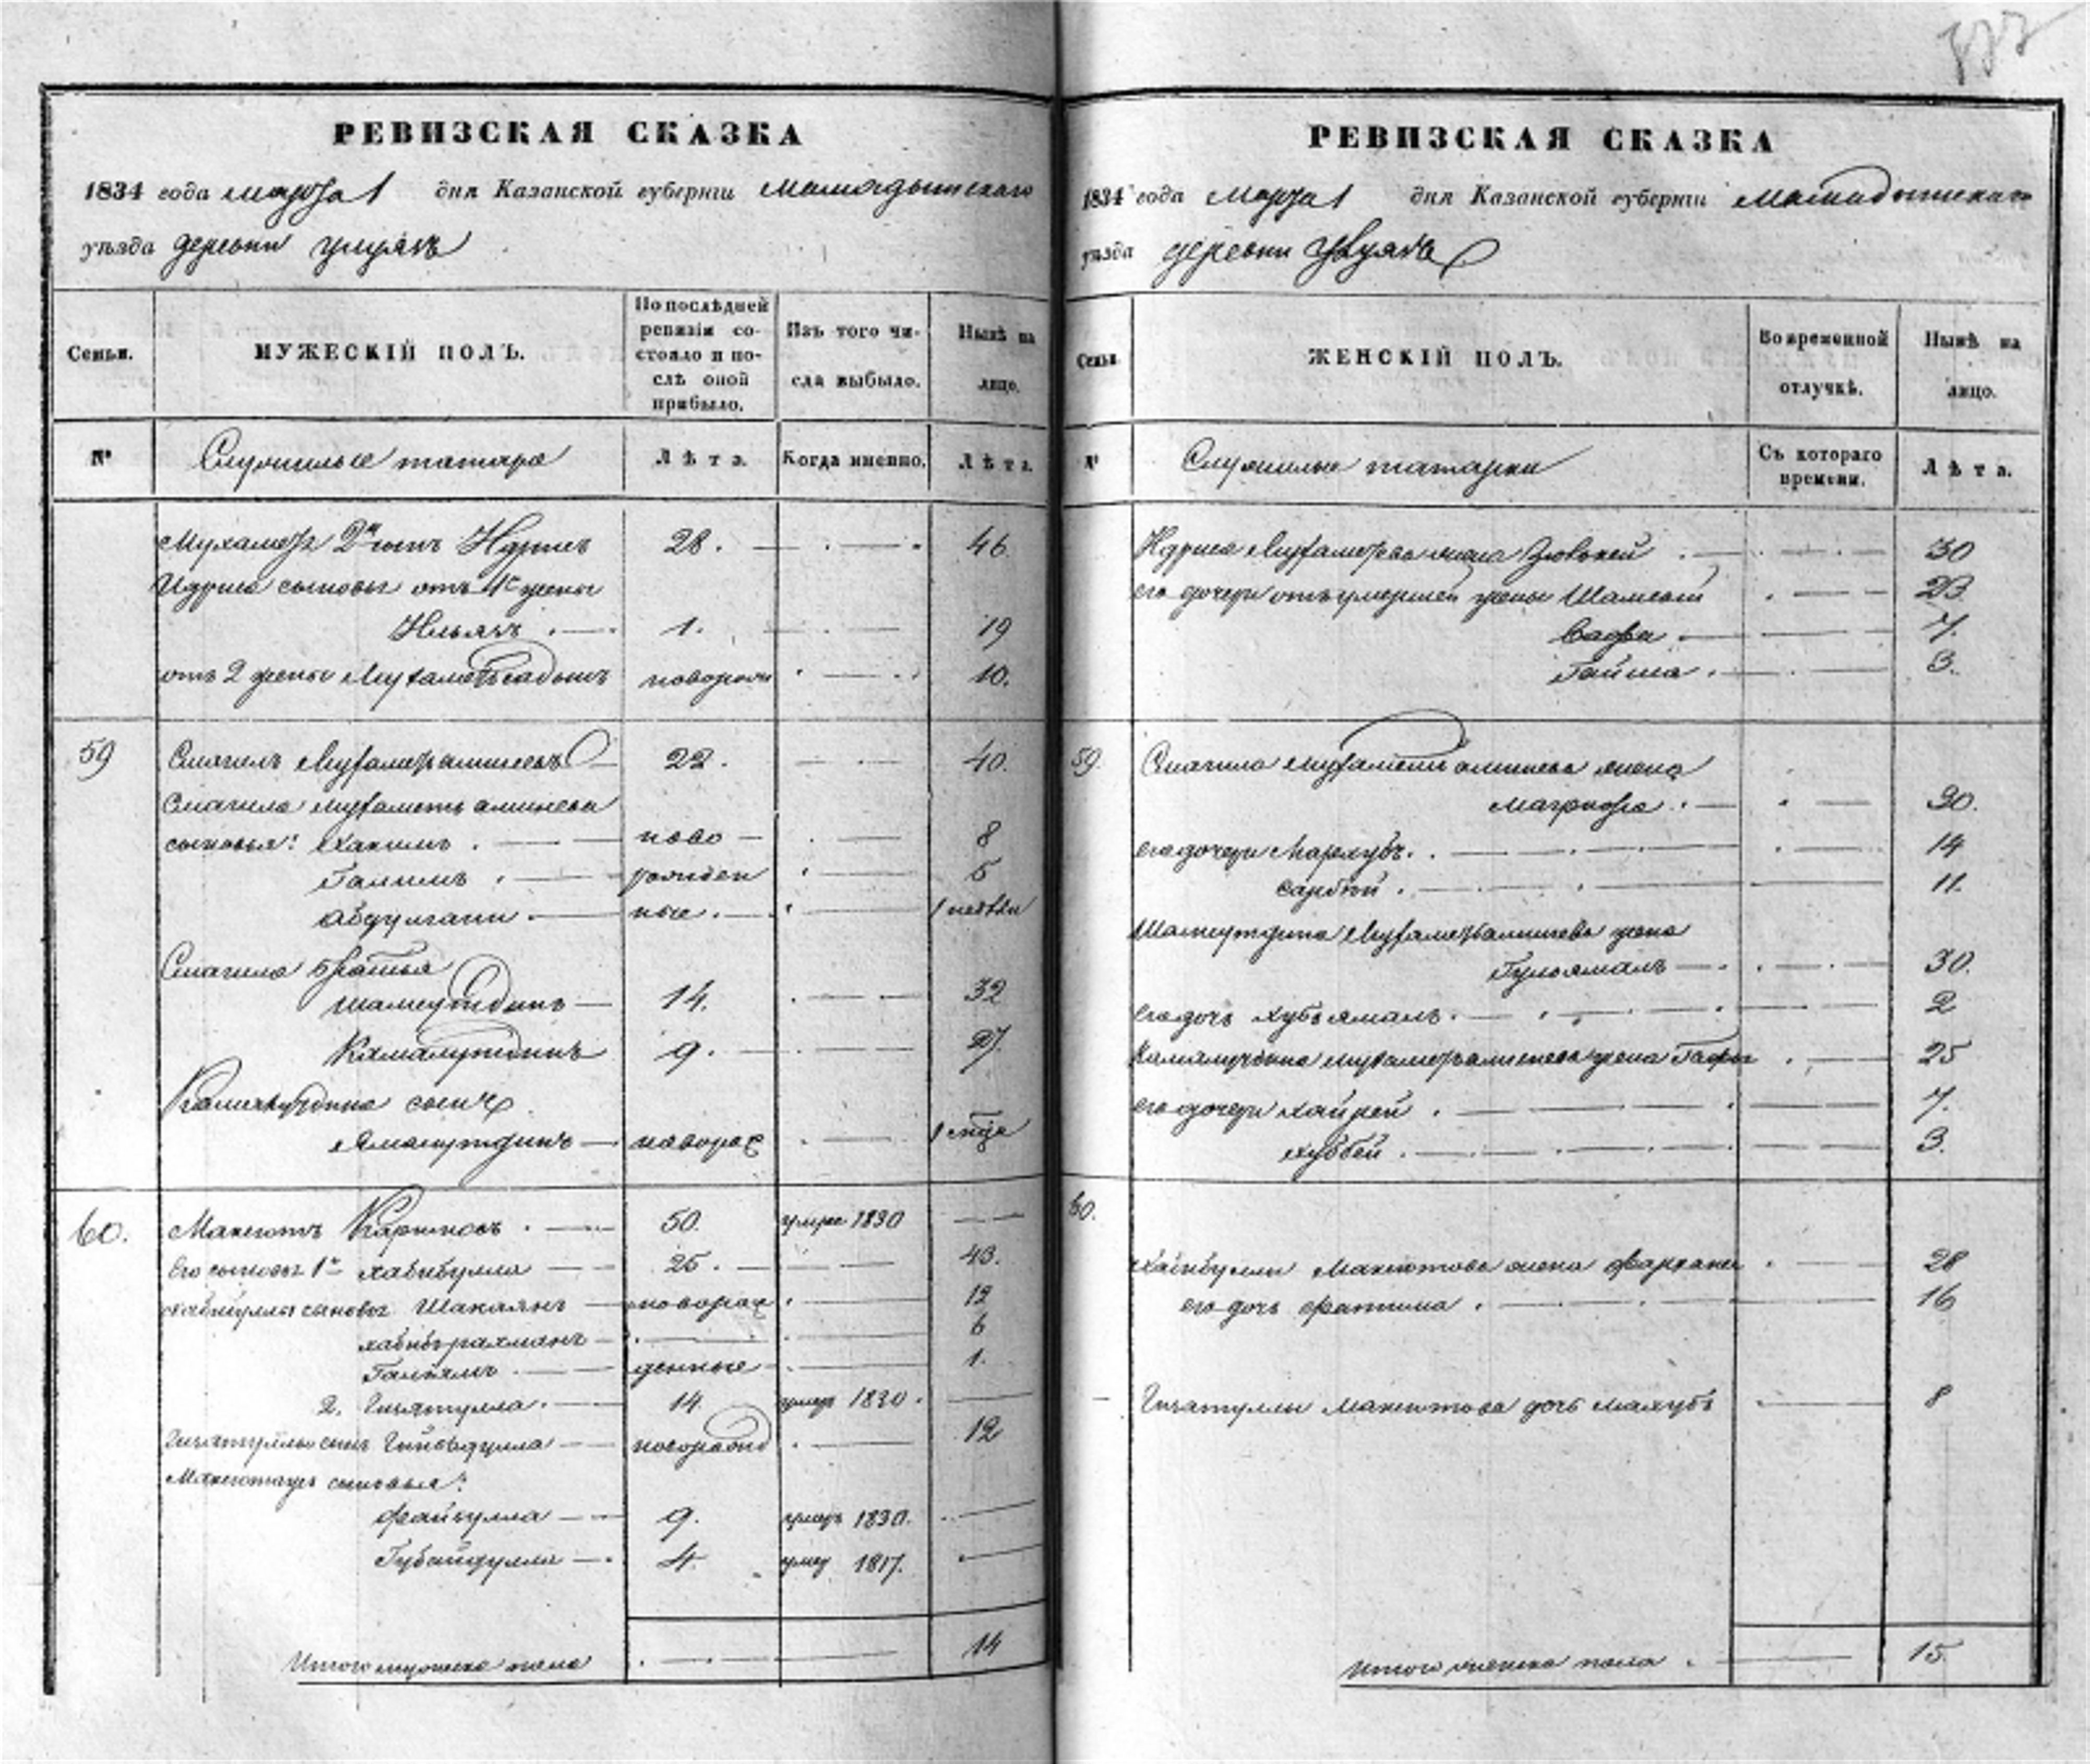 РЕВИЗСКАЯ СКАЗКА
1834 года марта 1 дня Казанской губерніи Мамадышскаго
уѣзда деревни
Семьи.
МУЖЕСКІЙ ПОЛЪ.
По послѣдней ревизіи состояло и послѣ оной прибыло.
Изъ того числа выбыло.
Нынѣ на лицо.
№
Служилые татара
Лѣта.
Когда именно.
Лѣта.
Мухаметъ 2й сынъ Идрисъ 28. 46
Идриса сыновья отъ 1й жены
Ильясъ 1. 19
отъ 2 жены Мухаметсадыкъ новорож 10.
59 Смагилъ Мухаметаминевъ 22. 40.
Смагила Мухаметъ аминева
сыновья: Хакимъ ново 8
Галимъ рожден 5
Абдулгани ные. 1 недѣли
Смагила братья
Шамсутдинъ 14. 32
Камалутдинъ 9. 27.
Камалутдина сынъ
Ямалутдинъ новорож 1
60. Максютъ Каримовъ 50. умре 1830
Его сыновья 1й Хабибулла 25. 43.
Хабибуллы сыновья Шакаянъ новорож 12
Хабибрахманъ 6
Галіямъ денные 1.
2. Гизятулла 14. умеръ 1830.
Гизятуллы сынъ новорожд 12
Максютовы сыновья:
Файзулла 9. умеръ 1830.
Губайдулла 4. умер 1817.
Итого мужеска пола 14
РЕВИЗСКАЯ СКАЗКА
1834 года Марта 1 дня Казанской губерніи Мамадышскаго
уѣзда деревни
Семьи
ЖЕНСКІЙ ПОЛЪ.
Во временной отлучкѣ.
Нынѣ на лицо.
№
Служилые татарки
Съ котораго времени.
Лѣта.
Идриса Мухаметова жена 30
его дочери отъ умершей жены 23
7.
Гайша 3.
59. Смагила Мухаметъ аминева жена
30.
его дочери 14
11.
Шамсутдина Мухаметаминева жена
Гульямалъ 30.
его дочь Хубьямалъ 2
Камалутдина Мухаметаминева жена 25
его дочери Хайрей 7.
Хуббей 3.
60.
Хабибуллы Максютова жена 28
его дочь Фатима 16
Гизятуллы Максютова дочь 8
Итого женска пола 15.